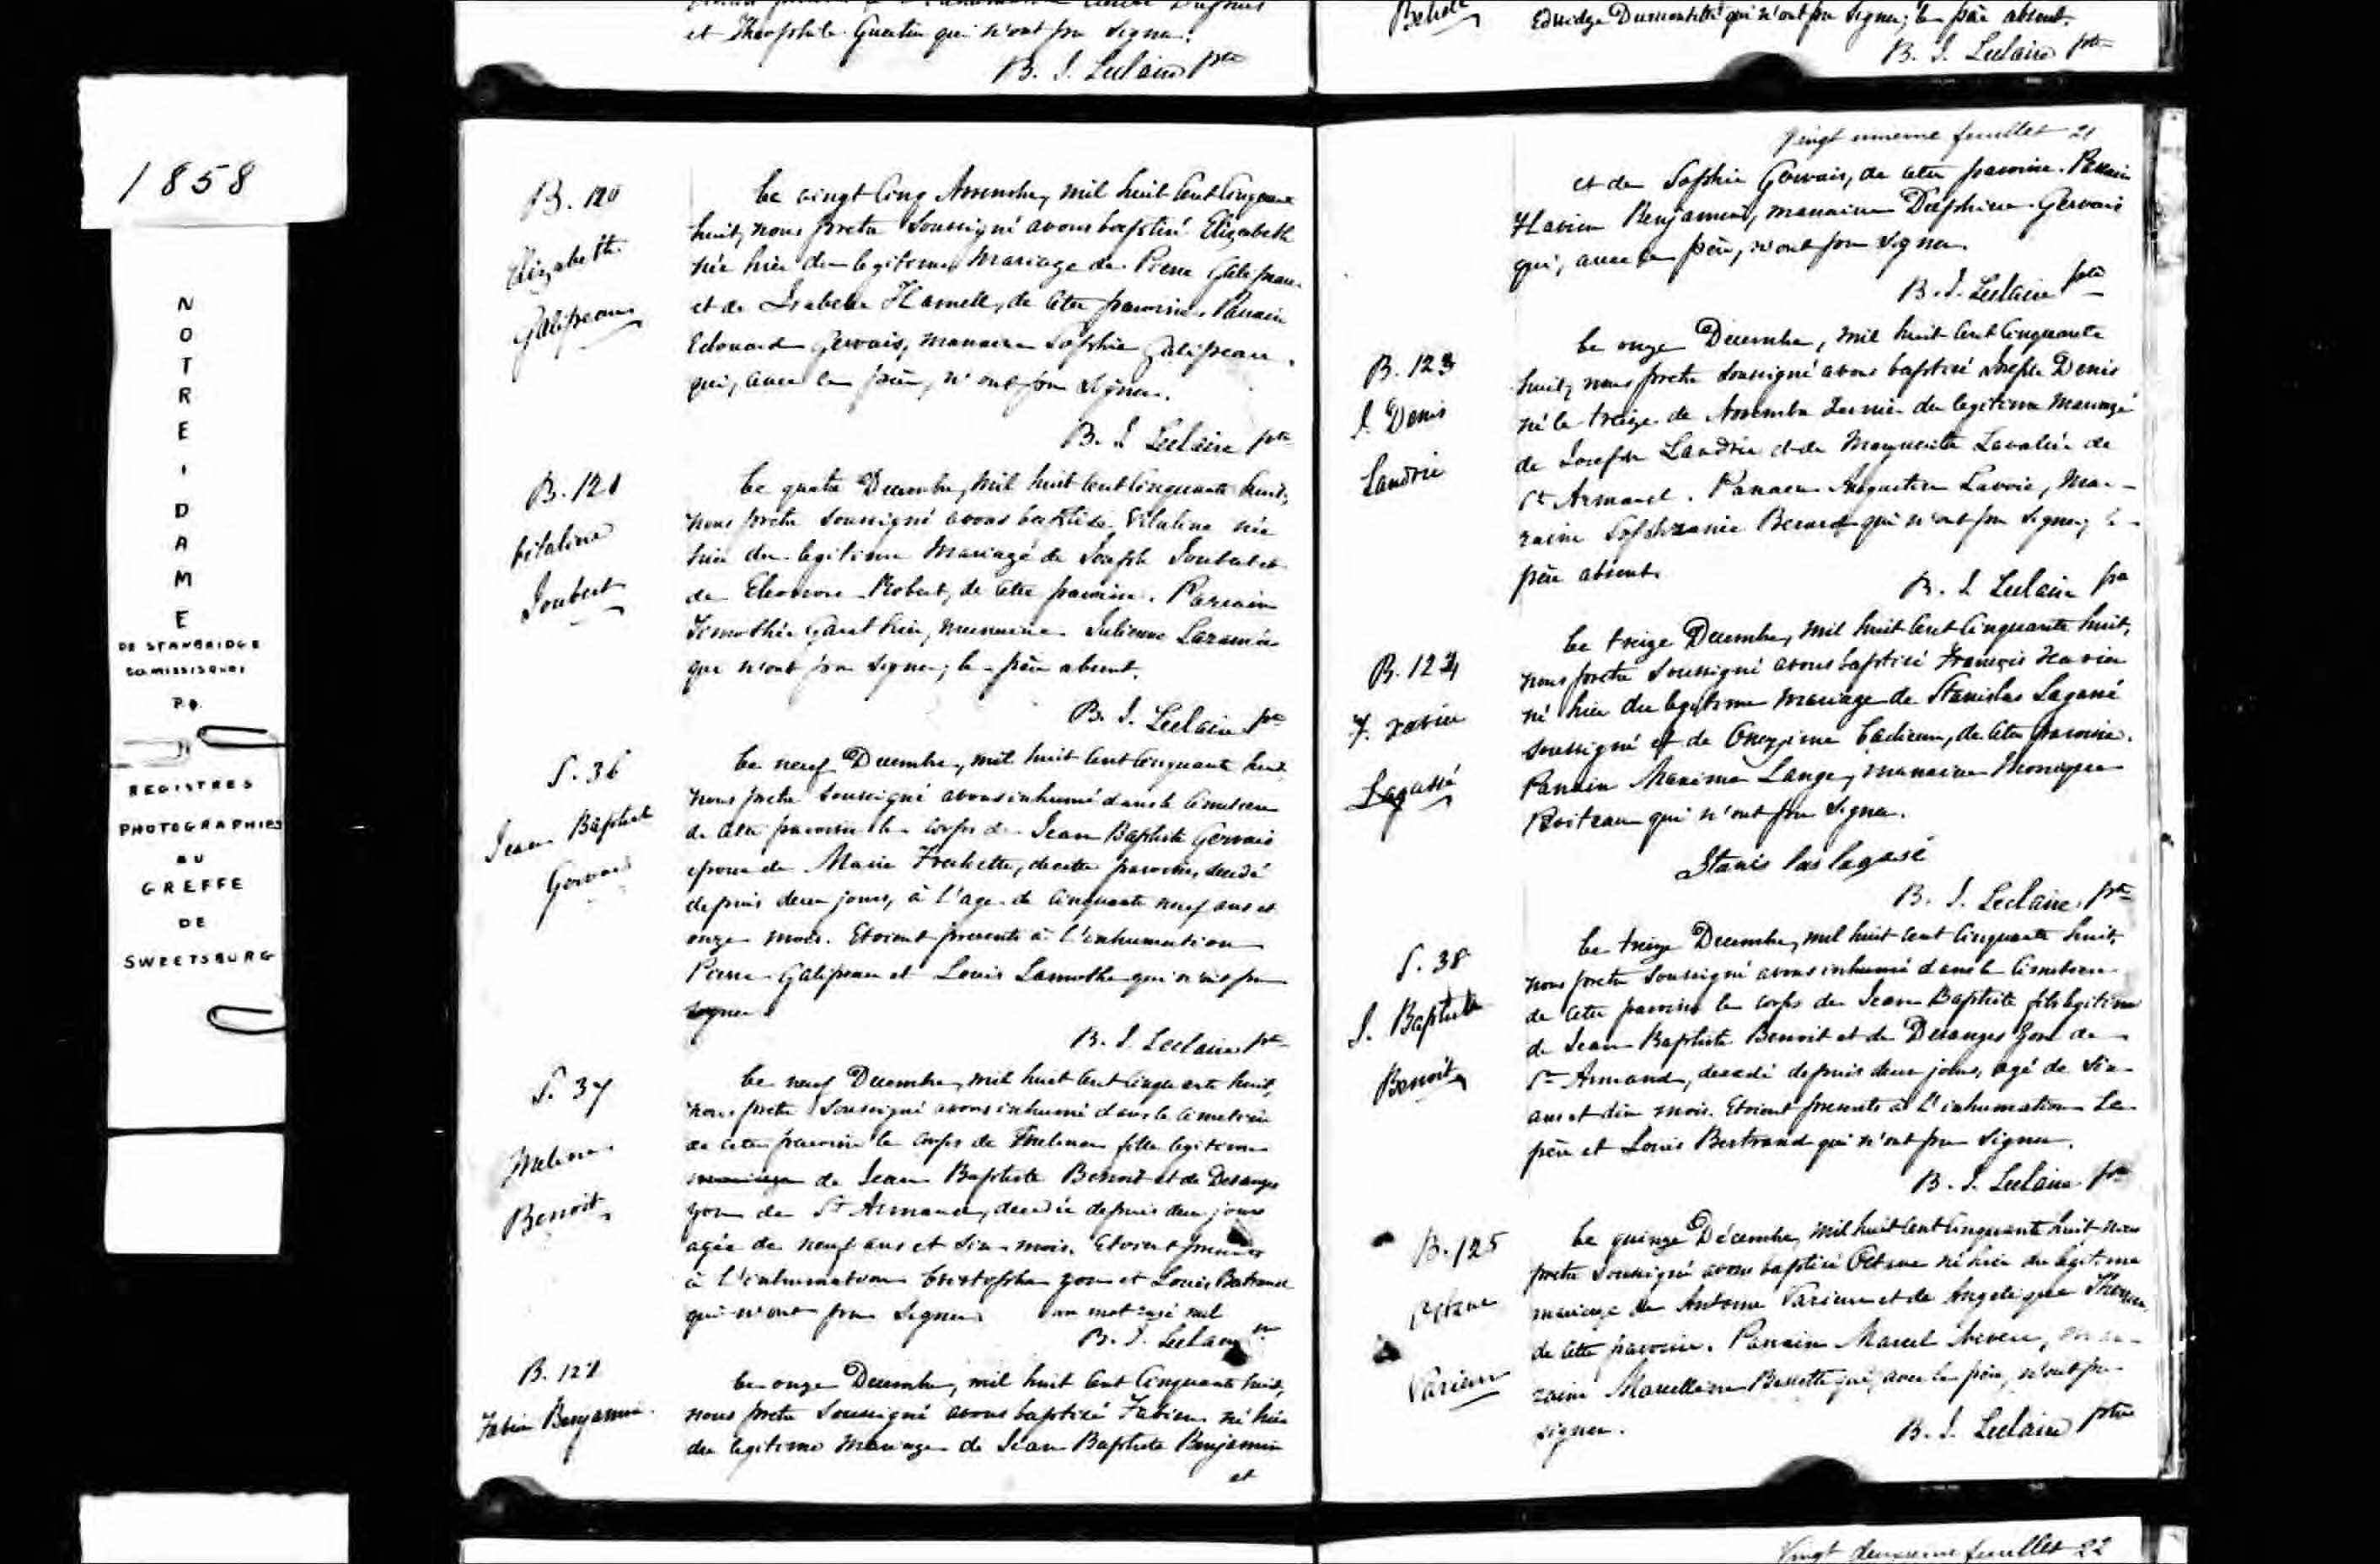 1858
NOTRE-DAME
DE STANBRIDGE
Co. MISSISQUOI
P.Q.
REGISTRES
PHOTOGRAPHIÉS
AU
GREFFE
DE
SWEETSBURG
et Théophile Quentin qui n'ont pu signer.
B. J. Leclaire ptre
B. 120
Elizabeth
Galipeau
Le vingt cinq Novembre, mil huit cent cinquante
huit, nous pretre soussigné avons baptisé Elizabeth
née hier du legitime mariage de Pierre Galipeau
et de Isabelle Hamell, de cette paroisse. Parrain
Edouard Gervais, marraine Sophie Galipeau
qui, avec le père, n'ont pu signer.
B. J. Leclaire ptre
B. 121
Vitaline
Joubert
Le quatre Decembre, mil huit cent cinquante huit,
nous pretre soussigné avons baptisé Vitaline née
hier du legitime mariage de Joseph Joubert et
de Eleonore Robert, de cette paroisse. Parrain
Timothée Gauthier, marraine Julienne Laramée
qui n'ont pu signer; le père absent.
B. J. Leclaire ptre
S. 36
Jean Baptiste
Gervais
Le neuf Decembre, mil huit cent cinquante huit
nous pretre soussigné avons inhumé dans le cimetiere
de cette paroisse le corps de Jean Baptiste Gervais
epoux de Marie Frechette, de cette paroisse, decedé
depuis deux jours, à l'age de cinquante neuf ans et
onze mois. Etoient presents à l'inhumation
Pierre Galipeau et Louis Lamothe qui n'ont pu
signer.
B. J. Leclaire ptre
S. 37
Melina
Benoit
Le neuf Decembre, mil huit cent cinquante huit,
nous pretre soussigné avons inhumé dans le cimetiere
de cette paroisse le corps de Melina fille legitime
mariage de Jean Baptiste Benoit et de Desanges
Yon de St Armand, decedée depuis deux jours
agée de neuf ans et six mois. Etoient presents
à l'inhumation Cristophe Yon et Louis Bertrand
qui n'ont pu signer. un mot rayé nul
B. J. Leclaire
B. 122
Fabien Benjamin
Le onze Decembre, mil huit cent cinquante huit,
nous pretre soussigné avons baptisé Fabien né hier
du legitime mariage de Jean Baptiste Benjamin
et
Edwidge qui n'ont pu signer; le père absent.
B. J. Leclaire ptre
Vingt unieme feuillet 21
et de Sophie Gervais, de cette paroisse. Parrain
Flavien Benjamin, marraine Delphine Gervais
qui, avec le père, n'ont pu signer.
B. J. Leclaire ptre
B. 123
J. Denis
Landrie
Le onze Decembre, mil huit cent cinquante
huit, nous pretre soussigné avons baptisé Joseph Denis
né le treize de Novembre dernier du legitime mariage
de Joseph Landrie et de Marguerite Lavalée de
St Armand. Parrain Augustin Lavoie, mar-
raine Sophranie Berard qui n'ont pu signer; le
père absent.
B. J. Leclaire ptre
B. 124
F. Xavier
Lagassé
Le treize Decembre, mil huit cent cinquante huit,
nous pretre soussigné avons baptisé François Xavier
né hier du legitime mariage de Stanislas Lagassé
soussigné et de Onezime Cadieux, de cette paroisse.
Parrain Maxime Lange, marraine Monique
Boiteau qui n'ont pu signer.
Stanis las lagasé
B. J. Leclaire, ptre
S. 38
J. Baptiste
Benoit
Le treize Decembre, mil huit cent cinquante huit,
nous pretre soussigné avons inhumé dans le cimetiere
de cette paroisse le corps de Jean Baptiste fils legitime
de Jean Baptiste Benoit et de Desanges Yon de
St Armand, decedé depuis deux jours, agé de six
ans et dix mois. Etoient presents à l'inhumation le
père et Louis Bertrand qui n'ont pu signer.
B. J. Leclaire ptre
B. 125
Octave
Varieur
Le quinze Décembre, mil huit cent cinquante huit nous
pretre soussigné avons baptisé Octave né hier du légitime
mariage de Antoine Varieur et de Angelique
de cette paroisse. Parrain Marcel mar-
raine Marcelline Bessette qui, avec le père, n'ont pu
signer.
B. J. Leclaire ptre
Vingt deuxieme feuillet 22